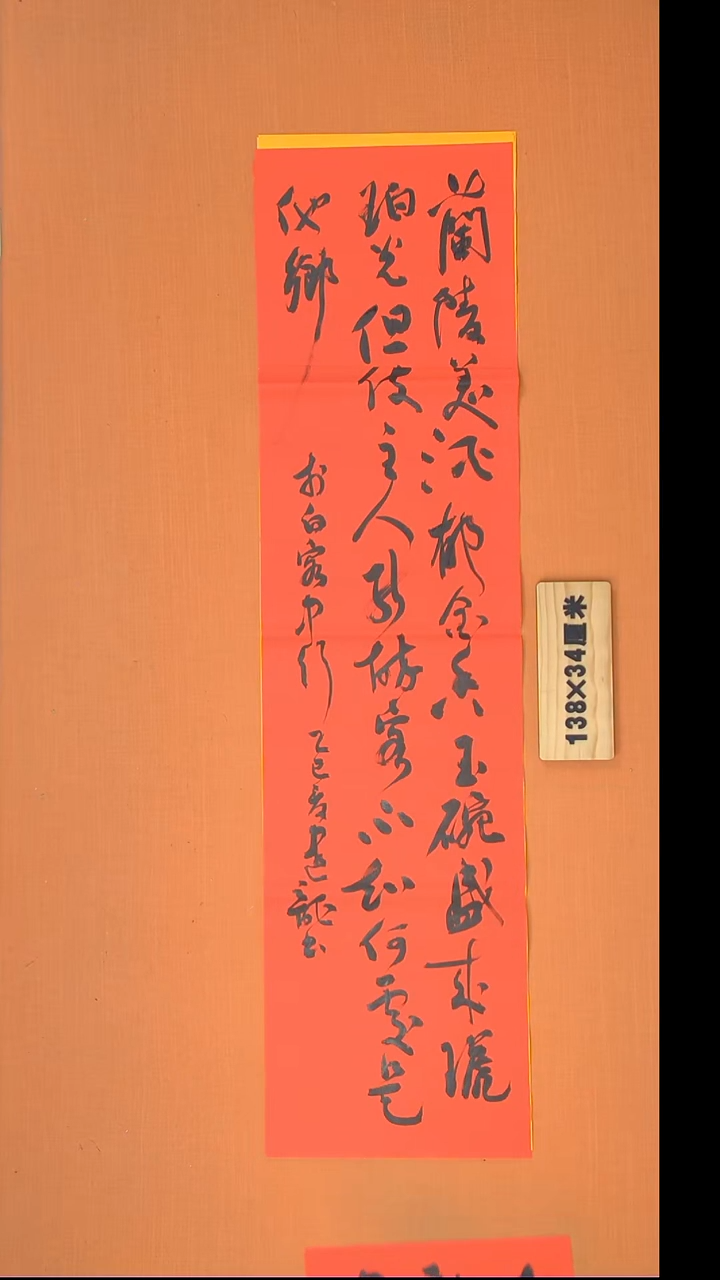 蘭陵美酒郁金香玉碗盛来琥
珀光但使主人能醉客不知何處是
他鄉
李白客中行 乙巳 龍书
138×34厘米